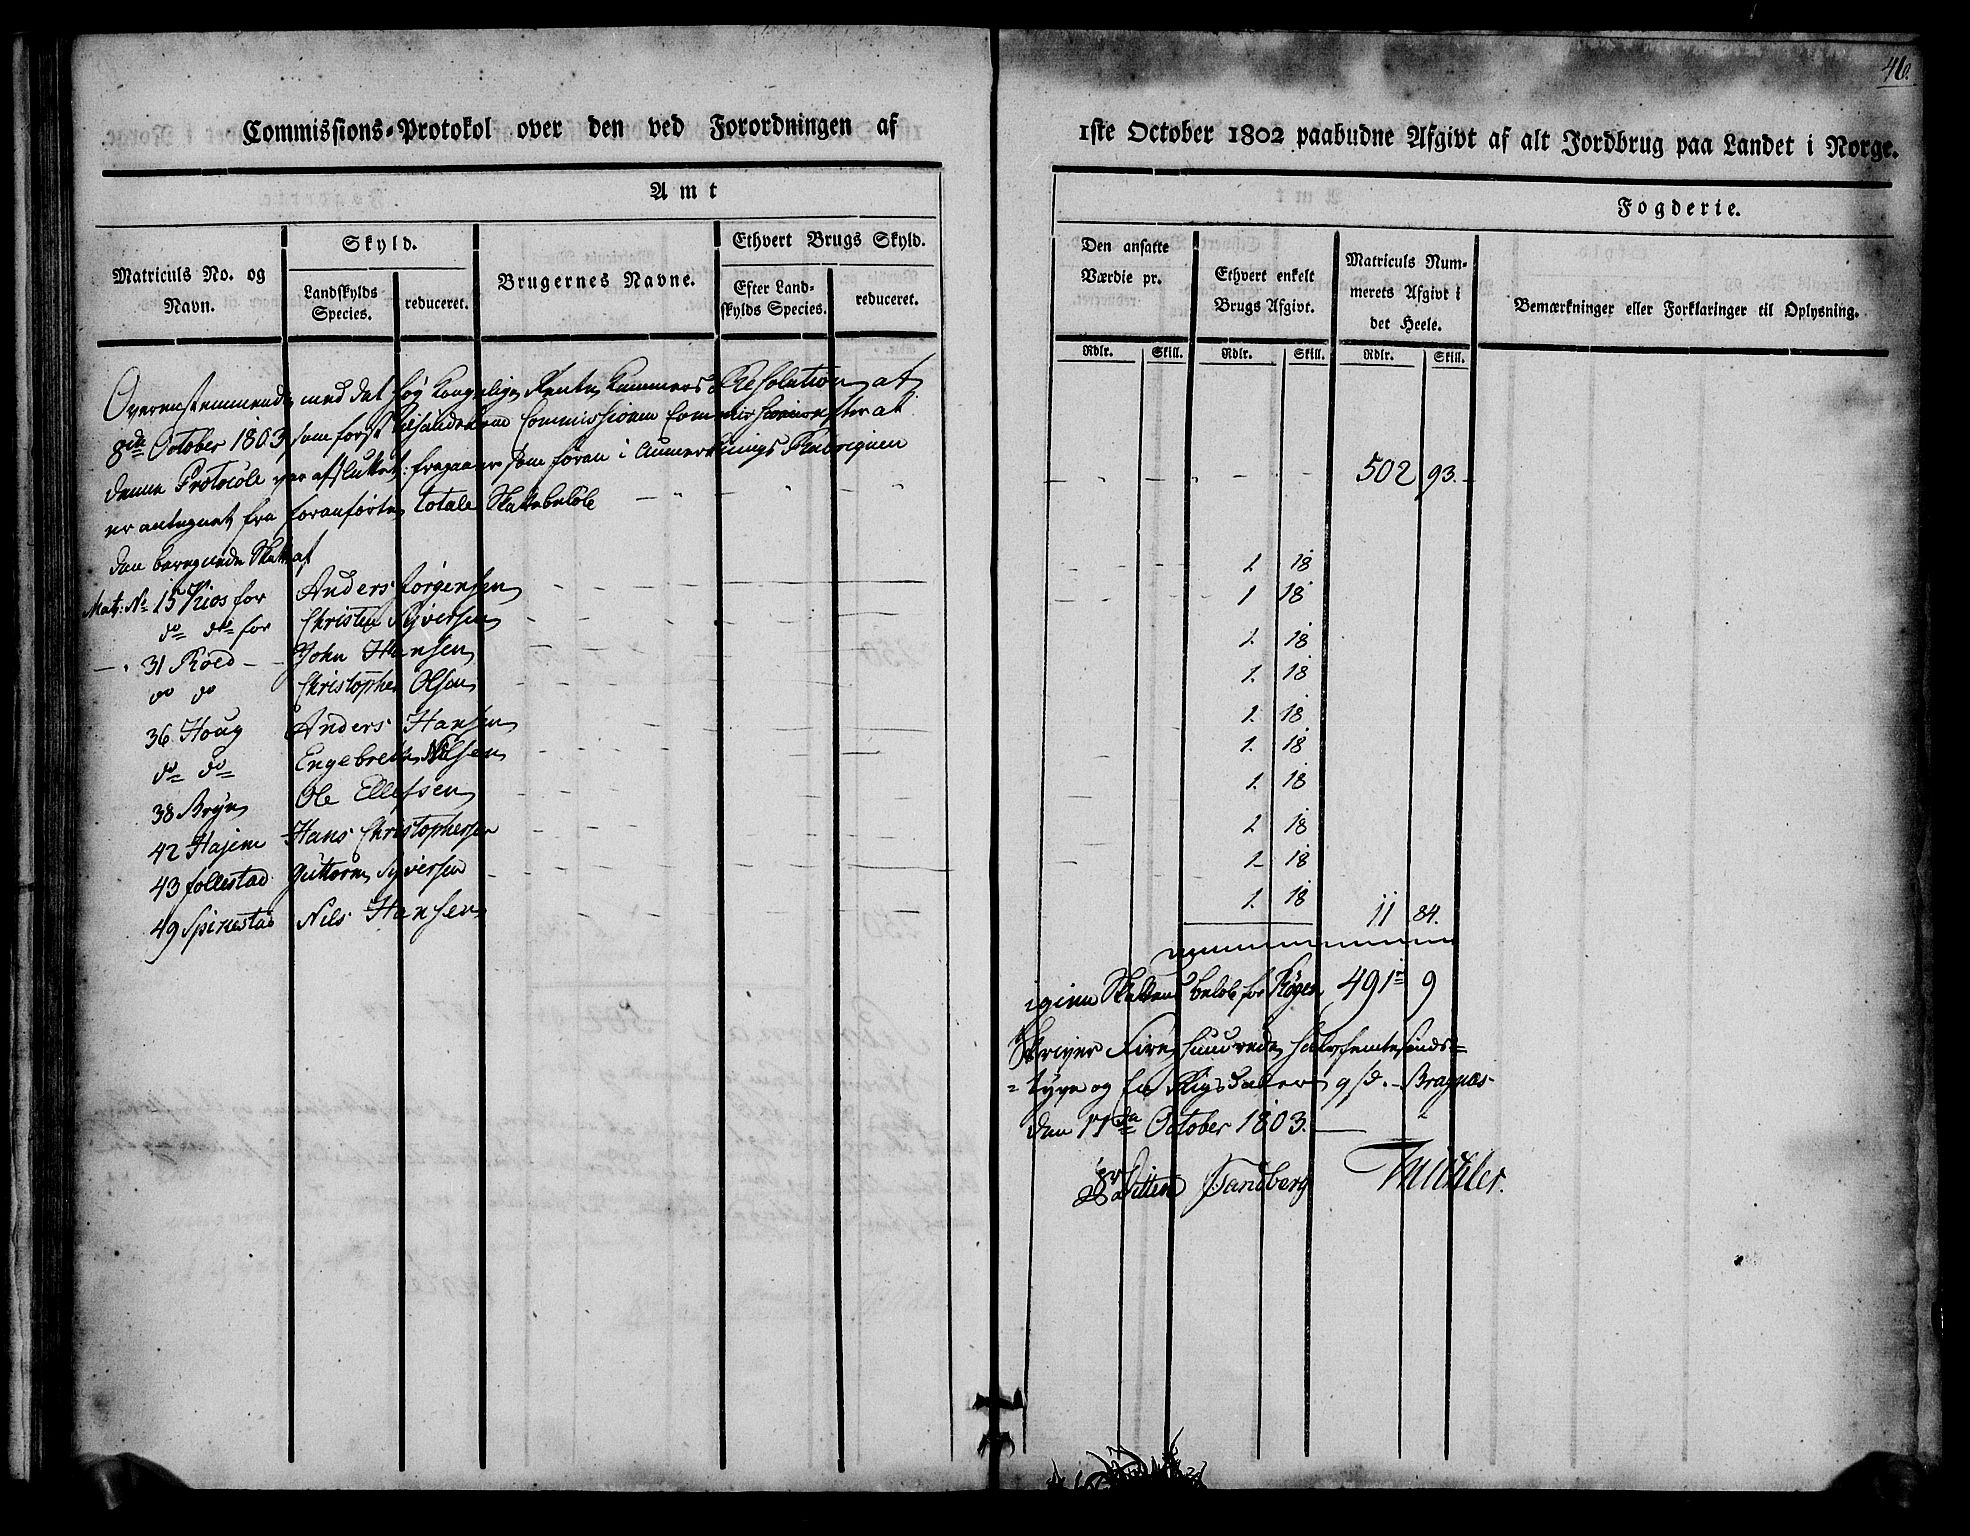 46.
Commissions-Protokol over den ved Forordningen af
1ste October 1802 paabudne Afgivt af alt Jordbrug paa Landet i Norge.
Amt
Fogderie.
Matriculs No. og Navn.
Skyld.
Landskylds Species.
reduceret.
Brugernes Navne.
Ethvert Brugs Skyld.
Efter Landskylds Species.
reduceret.
Den ansatte Værdie pr.
Ethvert enkelt Brugs Afgivt.
Matriculs Nummerets Afgivt i det Heele.
Bemærkninger eller Forklaringer til Oplysning.
Rdlr. Skill. Rdlr. Skill. Rdlr. Skill.
Overenstemmende med det høy Kongelige Rente Kammers Resolution af
8de October 1803, som først Commissionen efter at
denne Protocole var afsluttet: fragaaer som foran i Anmerknings Rubriquen
er antegnet fra foranførte totale Skattebeløb - 502 93.
den beregnede Skatt af
Mat: No 15 Kios for Anders Jørgensen 1. 18
do do for Christen Syversen 1 18
31 Röed John Hansen 1. 18
do do Christopher Olsen 1. 18
36. Houg Anders Hansen 1. 18
do do Engebreth Nilsen 1. 18
38 Bryn Ole Ellefsen 1. 18
42 Hajem Hans Christophersen 1 18
43 follestad Guttorm Syversen 1 18
49 Spikestad Nils Hansen 1. 18 11 84.
Skattens beløb for Røgen 491 9
Skriver Fire hundrede halvfemtesinds=
=tyve og En Rigsdaler 9 s. - Bragnæs
den 17da October 1803.
Sandberg